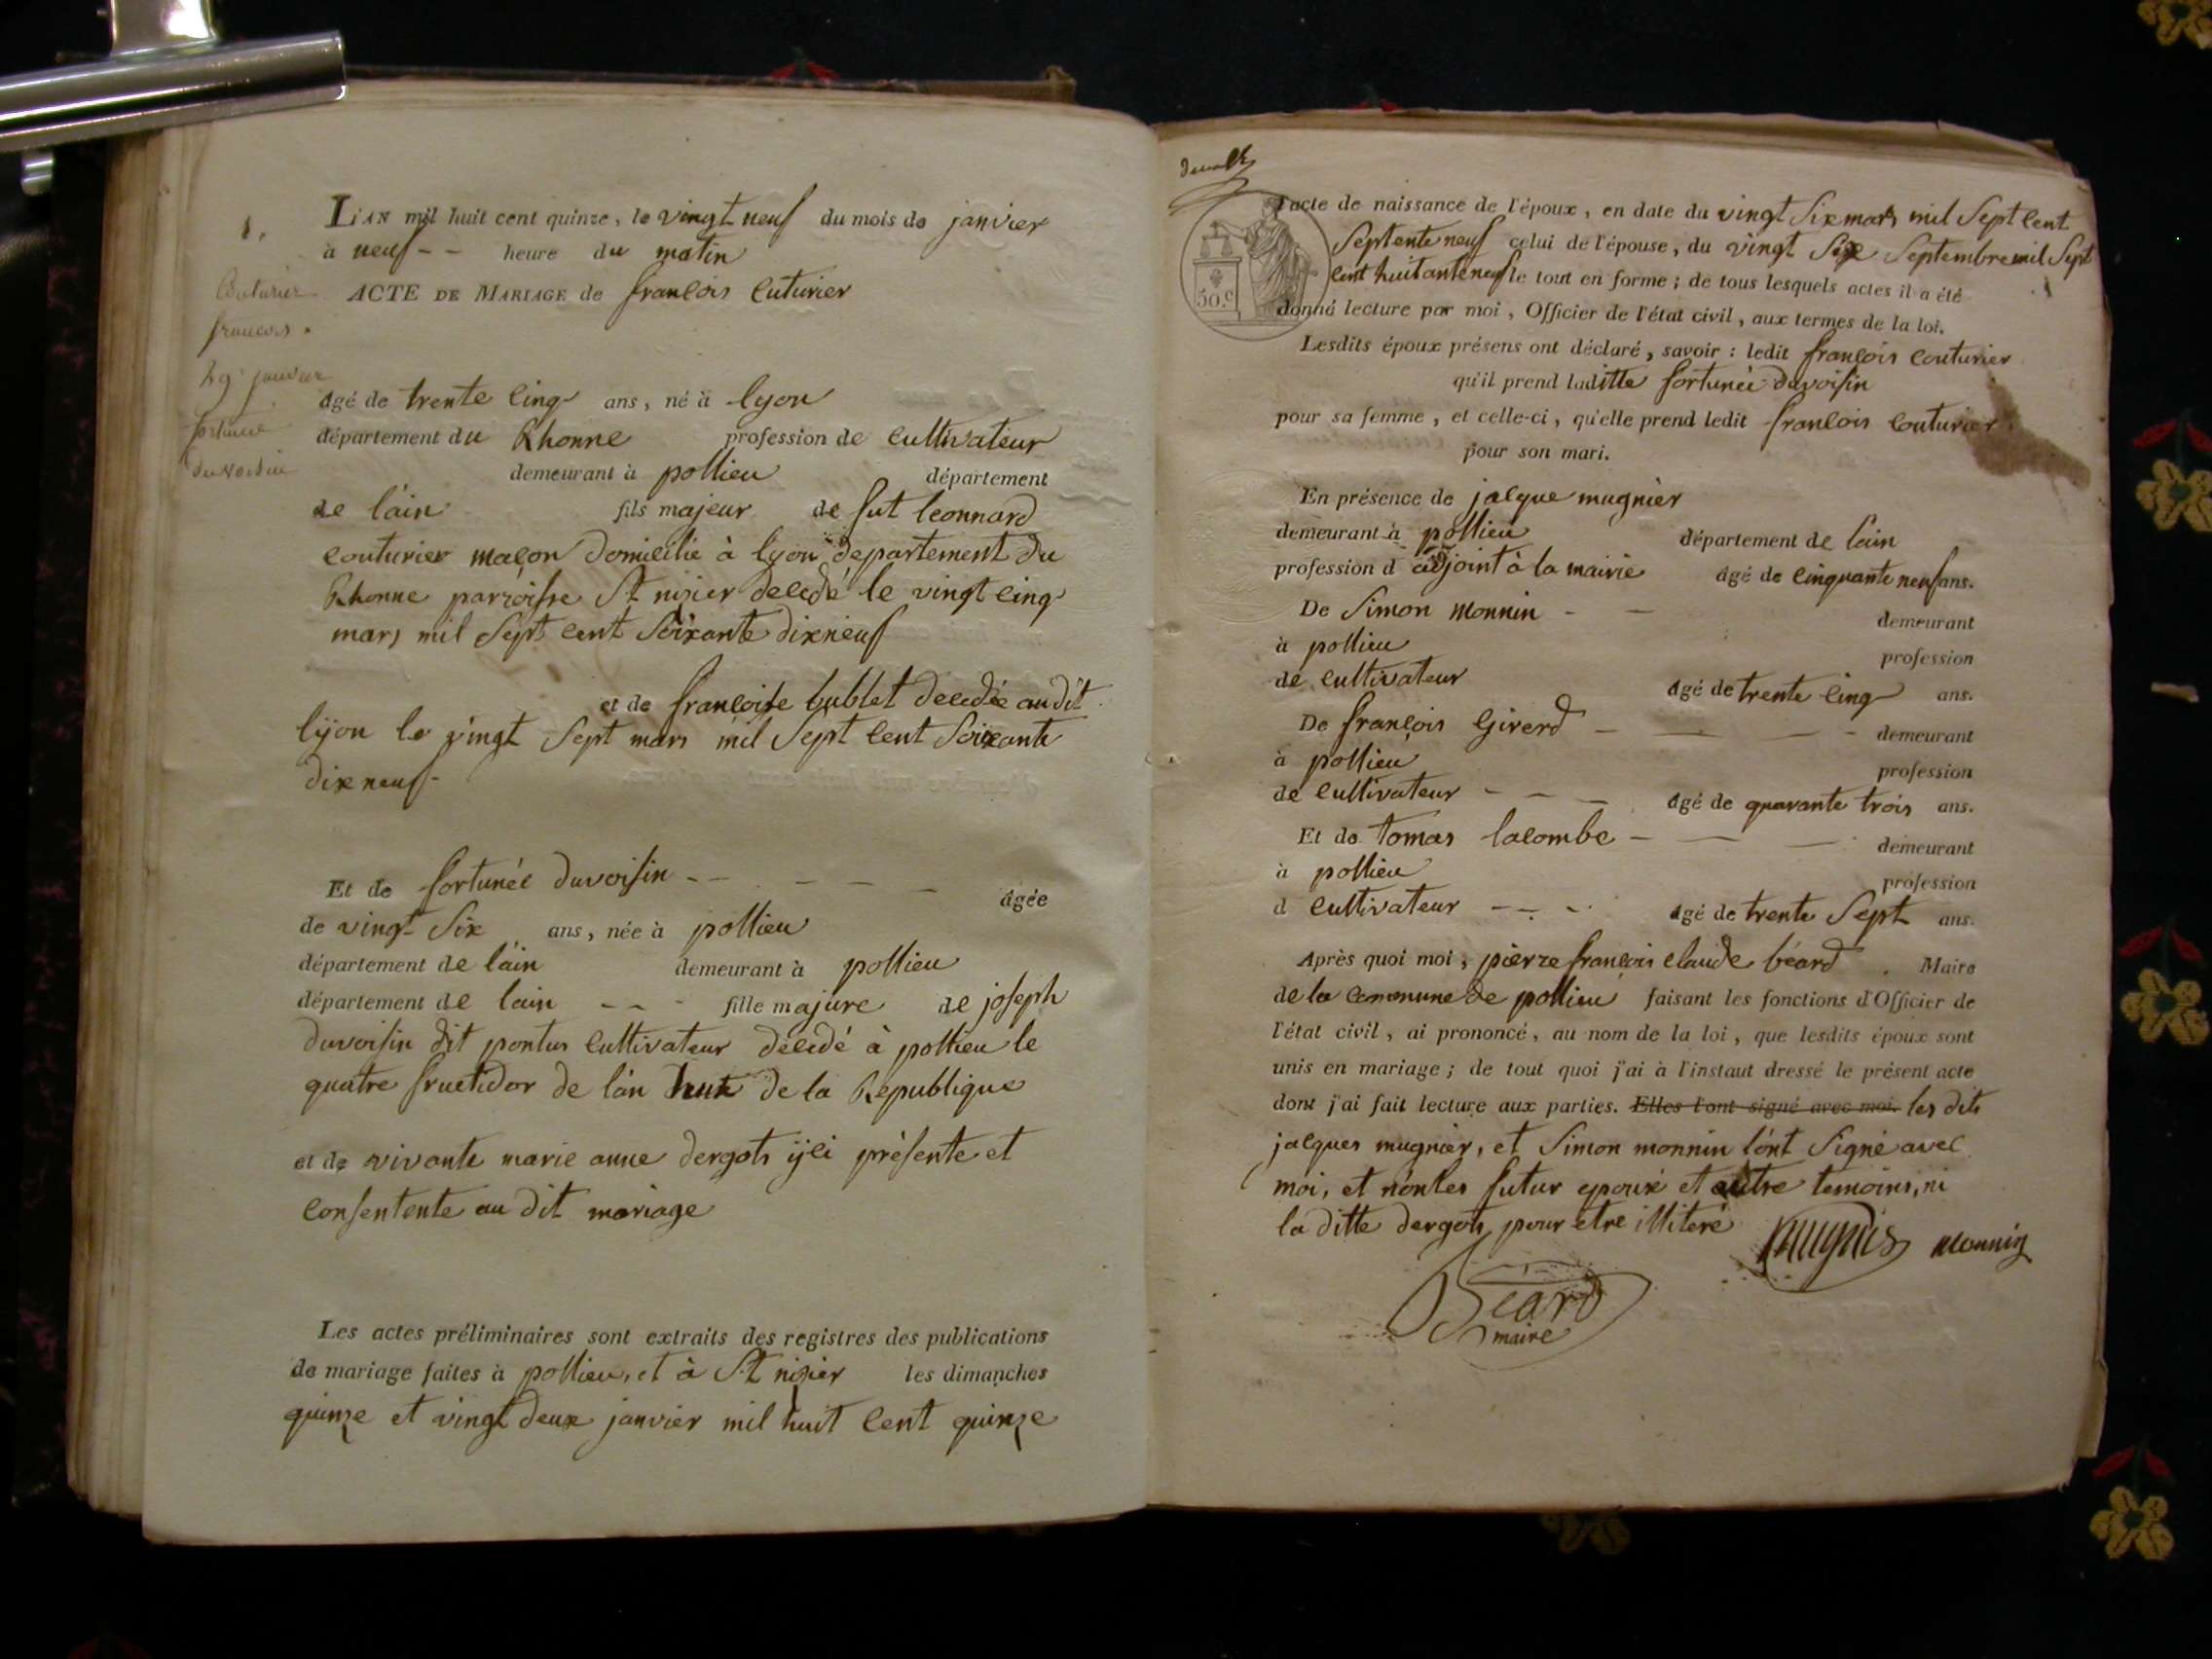 1.
Couturier
francois.
29 janvier
fortunée
duvoisin
L'AN mil huit cent quinze, le vingt neuf du mois de janvier
à neuf - - heure du matin
ACTE DE MARIAGE de françois Cuturier
âgé de trente cinq ans, né à lyon
département du Rhonne profession de cultivateur
demeurant à pollieu département
de l'ain fils majeur de fut leonnard
couturier maçon domicilié à lyon departement du
Rhonne parroisse St nizier decedé le vingt cinq
mars mil sept cent soixante dix neuf
et de françoise bublet decedée au dit
lyon le vingt sept mars mil sept cent soixante
dix neuf -
Et de fortunée duvoisin - - - - - âgée
de vingt six ans, née à pollieu
département de l'ain demeurant à pollieu
département de lain - - - fille majure de joseph
duvoisin dit pontus cultivateur décedé à pollieu le
quatre fructidor de l'an huit de la Republique
et de vivante marie anne dergots ÿci présente et
consentente au dit mariage
Les actes préliminaires sont extraits des registres des publications
de mariage faites à pollieu, et à St nizier les dimanches
quinze et vingt deux janvier mil huit cent quinze
50.c
l'acte de naissance de l'époux, en date du vingt six mars mil sept cent
septente neuf celui de l'épouse, du vingt six septembre mil sept
cent huitante neuf le tout en forme; de tous lesquels actes il a été
donné lecture par moi, Officier de l'état civil, aux termes de la loi.
Lesdits époux présens ont déclaré, savoir: ledit françois couturier
qu'il prend laditte fortunée duvoisin
pour sa femme, et celle-ci, qu'elle prend ledit françois couturier
pour son mari.
En présence de jacque mugnier
demeurant à pollieu département de lain
profession d adjoint à la mairie âgé de cinquante neuf ans.
De simon monnin - - demeurant
à pollieu profession
de cultivateur âgé de trente cinq ans.
De françois Girerd - - - demeurant
à pollieu profession
de cultivateur - - - âgé de quarante trois ans.
Et de tomas lacombe - - - demeurant
à pollieu profession
d cultivateur - - - âgé de trente sept ans.
Après quoi moi, pierre françois claude béard Maire
de la commune de pollieu faisant les fonctions d'Officier de
l'état civil, ai prononcé, au nom de la loi, que lesdits époux sont
unis en mariage; de tout quoi j'ai à l'instant dressé le présent acte
dont j'ai fait lecture aux parties. Elles l'ont signé avec moi. les dits
jacques mugnier, et simon monnin l'ont signé avec
moi, et non les futur epoux et autre temoins, ni
la ditte dergots pour etre illiteré
mugnier monnin
Béard
maire